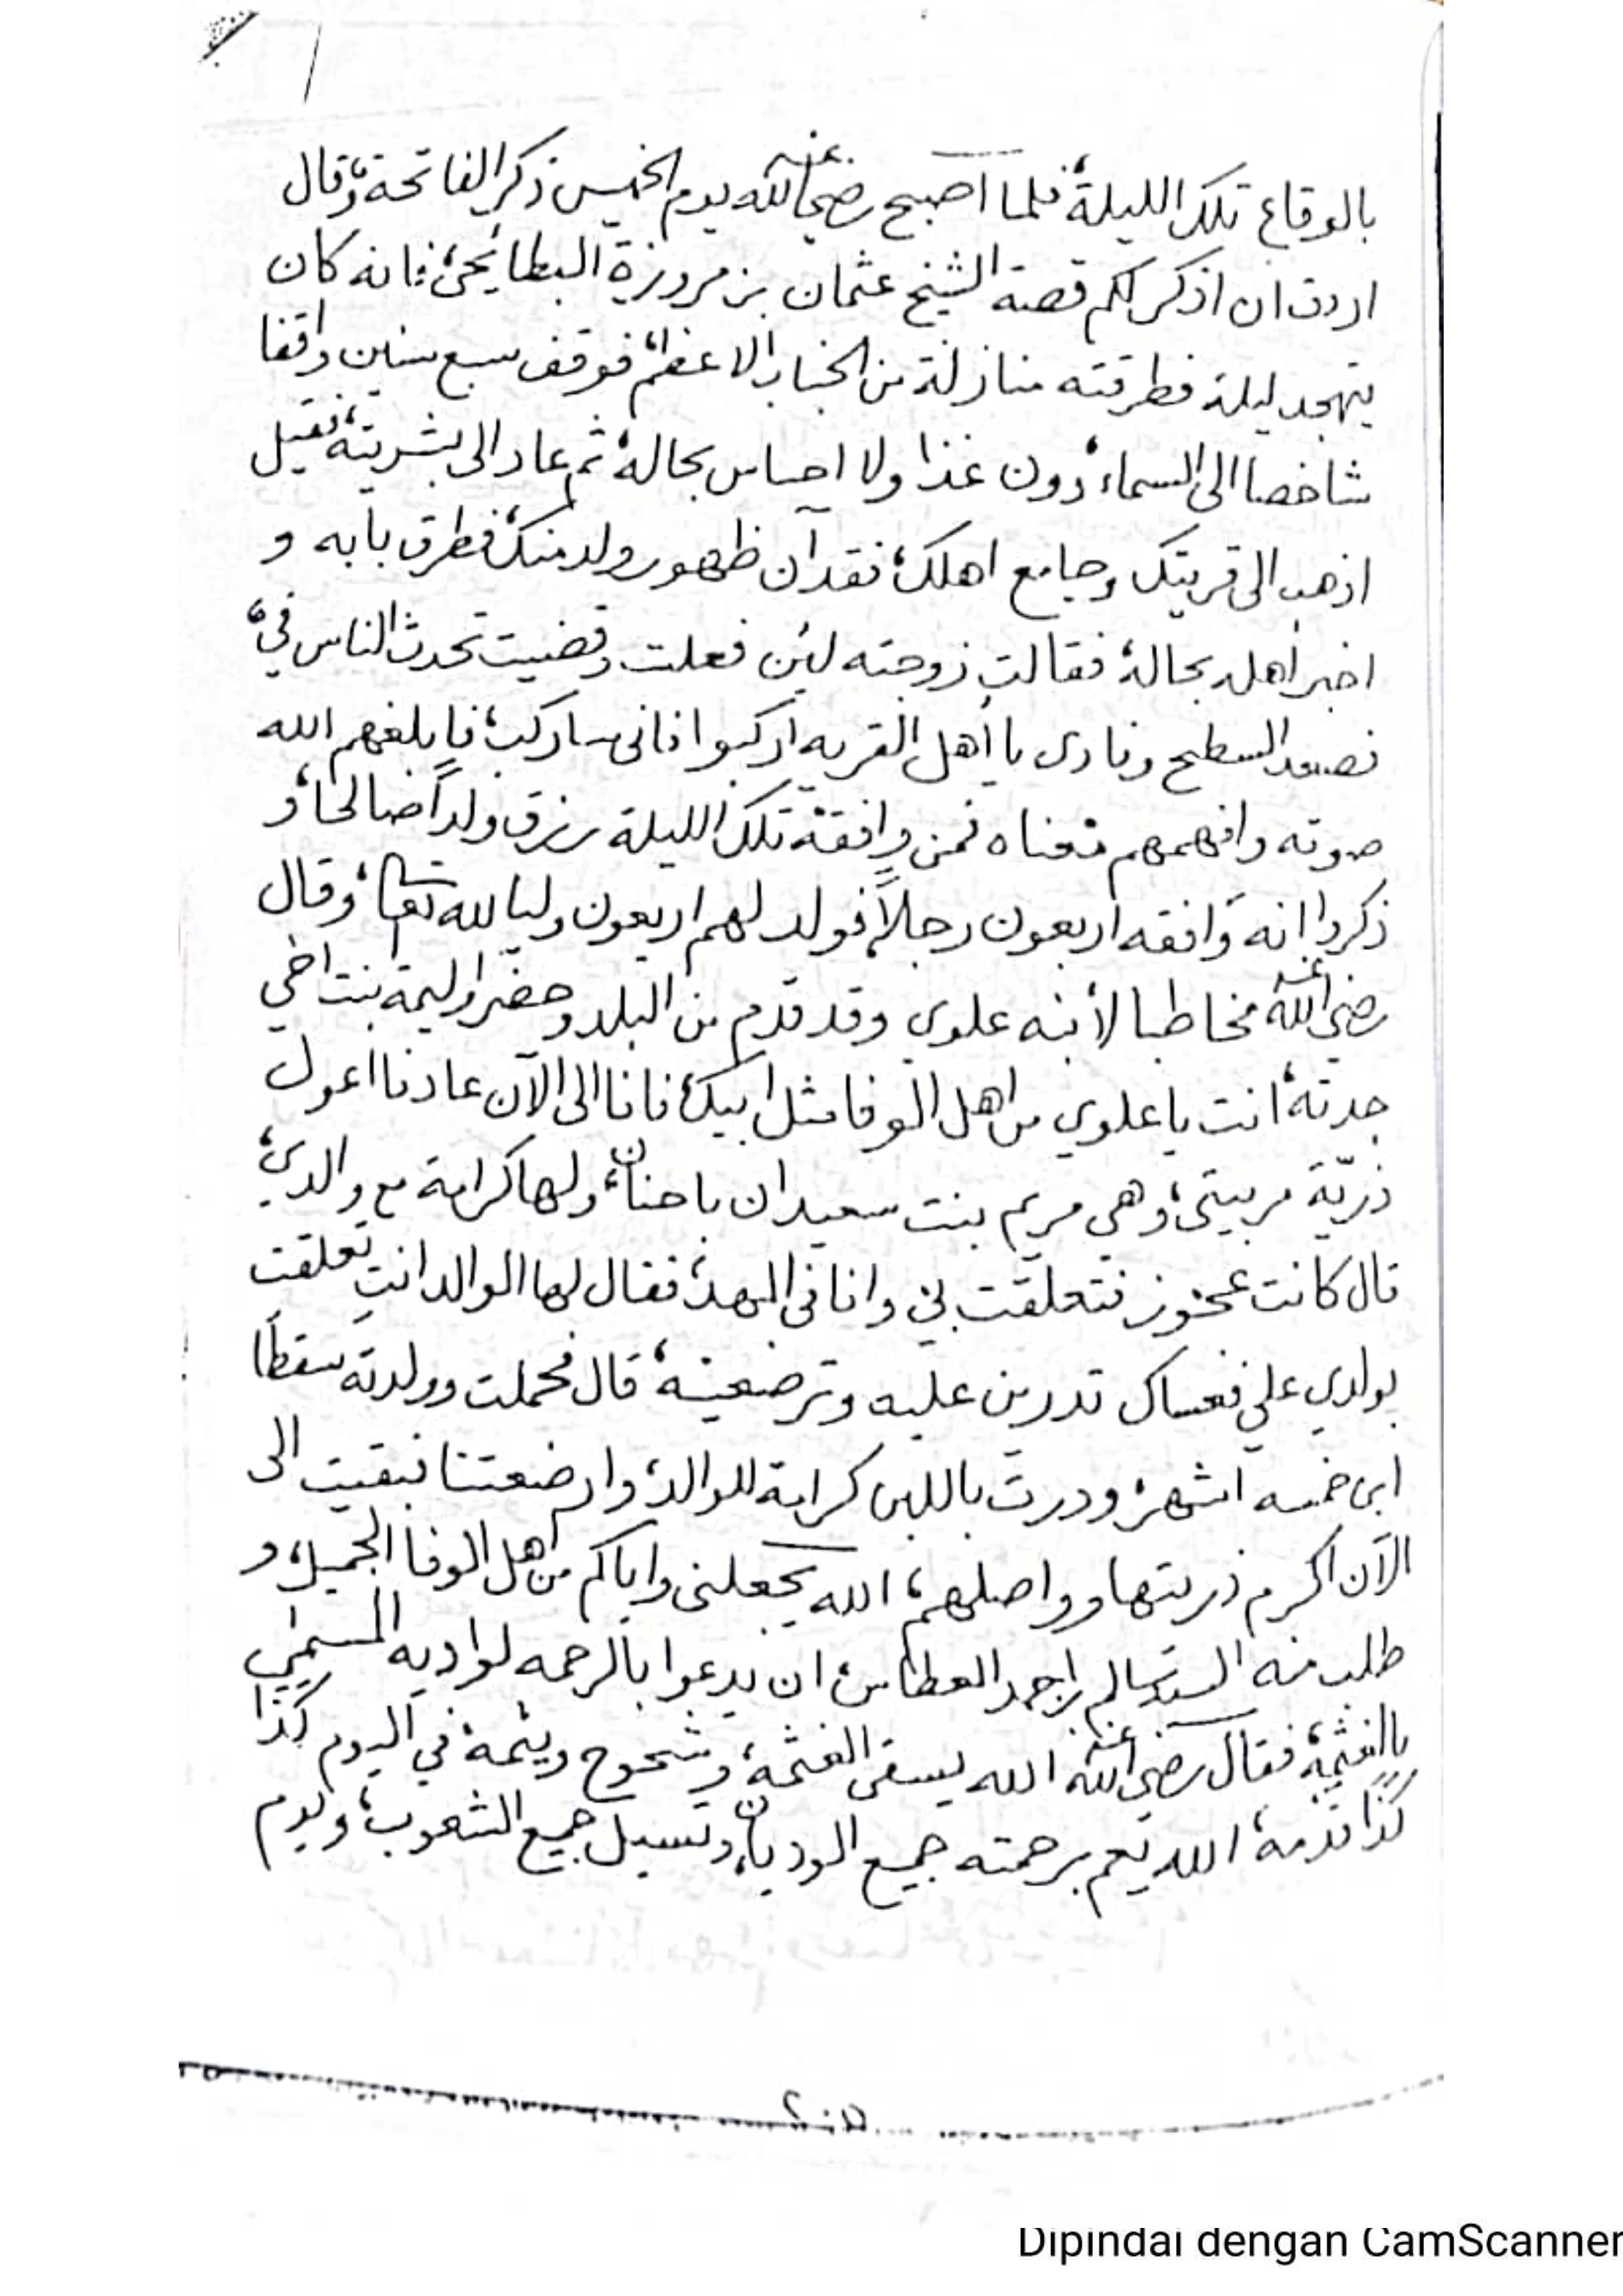 بالوقاع تلك الليلة، فلما اصبح رضي الله عنه يوم الخميس ذكر الفاتحة، وقال
اردت ان اذكر لكم قصة الشيخ عثمان بن مروزة البطايحئ، فانه كان
يتهجد ليلة فطرقته منازلة من الجناب الاعظم، فوقف سبع سنين واقفا
شاخصا الى السماء، دون غذا ولا احساس بحاله، ثم عاد الى بشريته، فقيل
اذهب الى قريتك وجامع اهلك، فقد آن ظهور ولد منك، فطرق بابه و
اخبر اهله بحاله، فقالت زوجته لئن فعلت وقضيت تحدث الناس فيّ،
فصعد السطح ونادى يا أهل القريه اركبوا فانى سا ركب، فابلغهم الله
صوته وافهمهم معناه فمن وافقه تلك الليلة رزق ولداً صالحا، و
ذكروا انه وافقه اربعون رجلاً، فولد لهم اربعون وليا لله تعالى، وقال
رضي الله عنه مخاطبا لأبنه علوي وقد قدم من البلد وحضر وليمة بنت اخي
جدته، انت يا علوي من اهل الوفا مثل ابيك، فانا الى الآن عادنا اعول
ذريّة مربيتى، وهي مريم بنت سعيدان باحنان، ولها كرامة مع والدي،
قال كانت عجوز فتعلقت بي وانا فى المهد، فقال لها الوالد انتِ تعلقت
بولدي علي فعساك تدرين عليه وترضعينه، قال فحملت وولدته سقطاً
ابن خمسه اشهر، ودرت باللبن كرامة للوالد، وارضعتنا فبقيت الى
الآن اكرم ذريتها وواصلهم، الله يجعلنى واياكم من اهل الوفا الجميل، و
طلب منه السيد سالم بن احمد العطاس، ان يدعوا بالرحمه لواديه المسمى
بالغثمة، فقال رضي الله عنه الله يسقى الغثمة، وشحوح ويثمة، في اليوم كذا
كذا قدمة، الله يعم برحمته جميع الوديان، وتسيل جميع الشعوب، ويوم
Dipindai dengan CamScanner